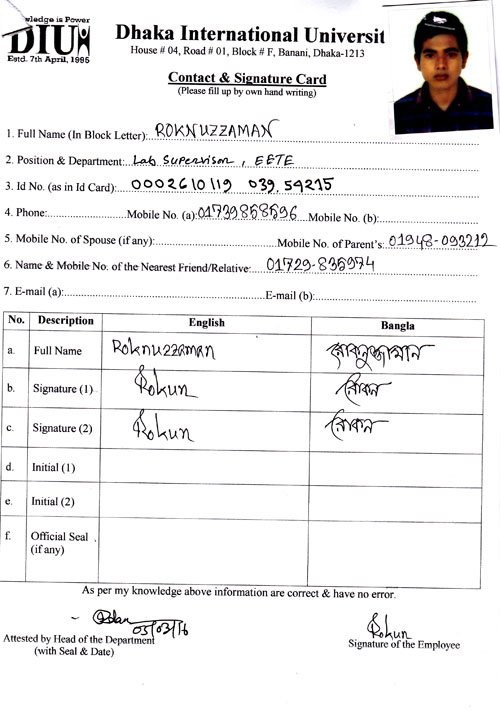 wledge is Power
DIU
Estd. 7th April, 1995
Dhaka International Universit
House # 04, Road # 01, Block # F, Banani, Dhaka-1213
Contact & Signature Card
(Please fill up by own hand writing)
1. Full Name (In Block Letter): ROKNUZZAMAN
2. Position & Department: Lab Supervisor, EETE
3. Id No. (as in Id Card): 0002610119 039.54215
4. Phone: Mobile No. (a): 01739858596 Mobile No. (b):
5. Mobile No. of Spouse (if any): Mobile No. of Parent's: 01948-093212
6. Name & Mobile No. of the Nearest Friend/Relative: 01729-835974
7. E-mail (a): E-mail (b):
No. Description English Bangla
a. Full Name ROKNUZZAMAN রোকনুজ্জামান
b. Signature (1) Rokun রোকন
c. Signature (2) Rokun রোকন
d. Initial (1)
e. Initial (2)
f. Official Seal
(if any)
As per my knowledge above information are correct & have no error.
03/03/16
Attested by Head of the Department
(with Seal & Date)
Rokun
Signature of the Employee